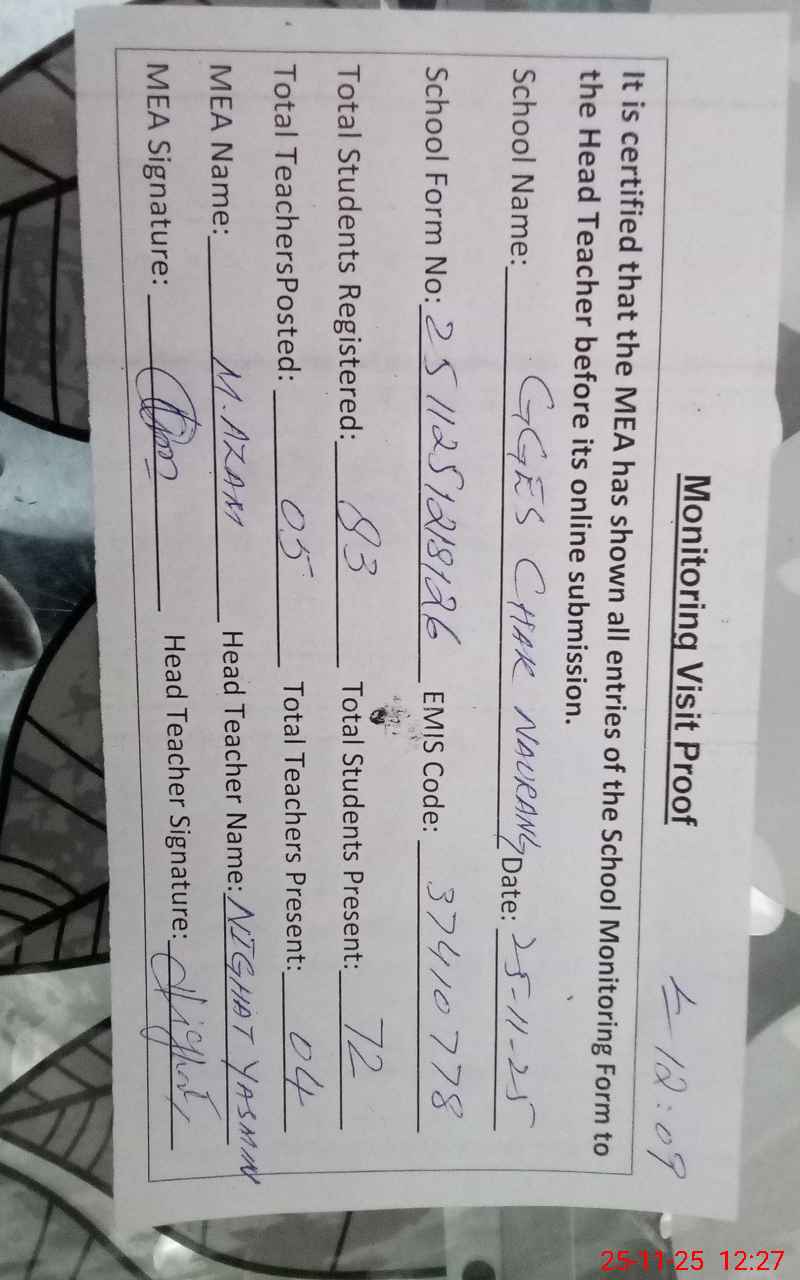 L- 12:09
Monitoring Visit Proof
It is certified that the MEA has shown all entries of the School Monitoring Form to
the Head Teacher before its online submission.
School Name: GGES CHAK NAURANG Date: 25-11-25
School Form No: 2511251218126 EMIS Code: 37410778
Total Students Registered: 83 Total Students Present: 72
Total TeachersPosted: 05 Total Teachers Present: 04
MEA Name: M.AZAM Head Teacher Name: NIGHAT YASMIN
MEA Signature: Head Teacher Signature: Nighat
25-11-25 12:27